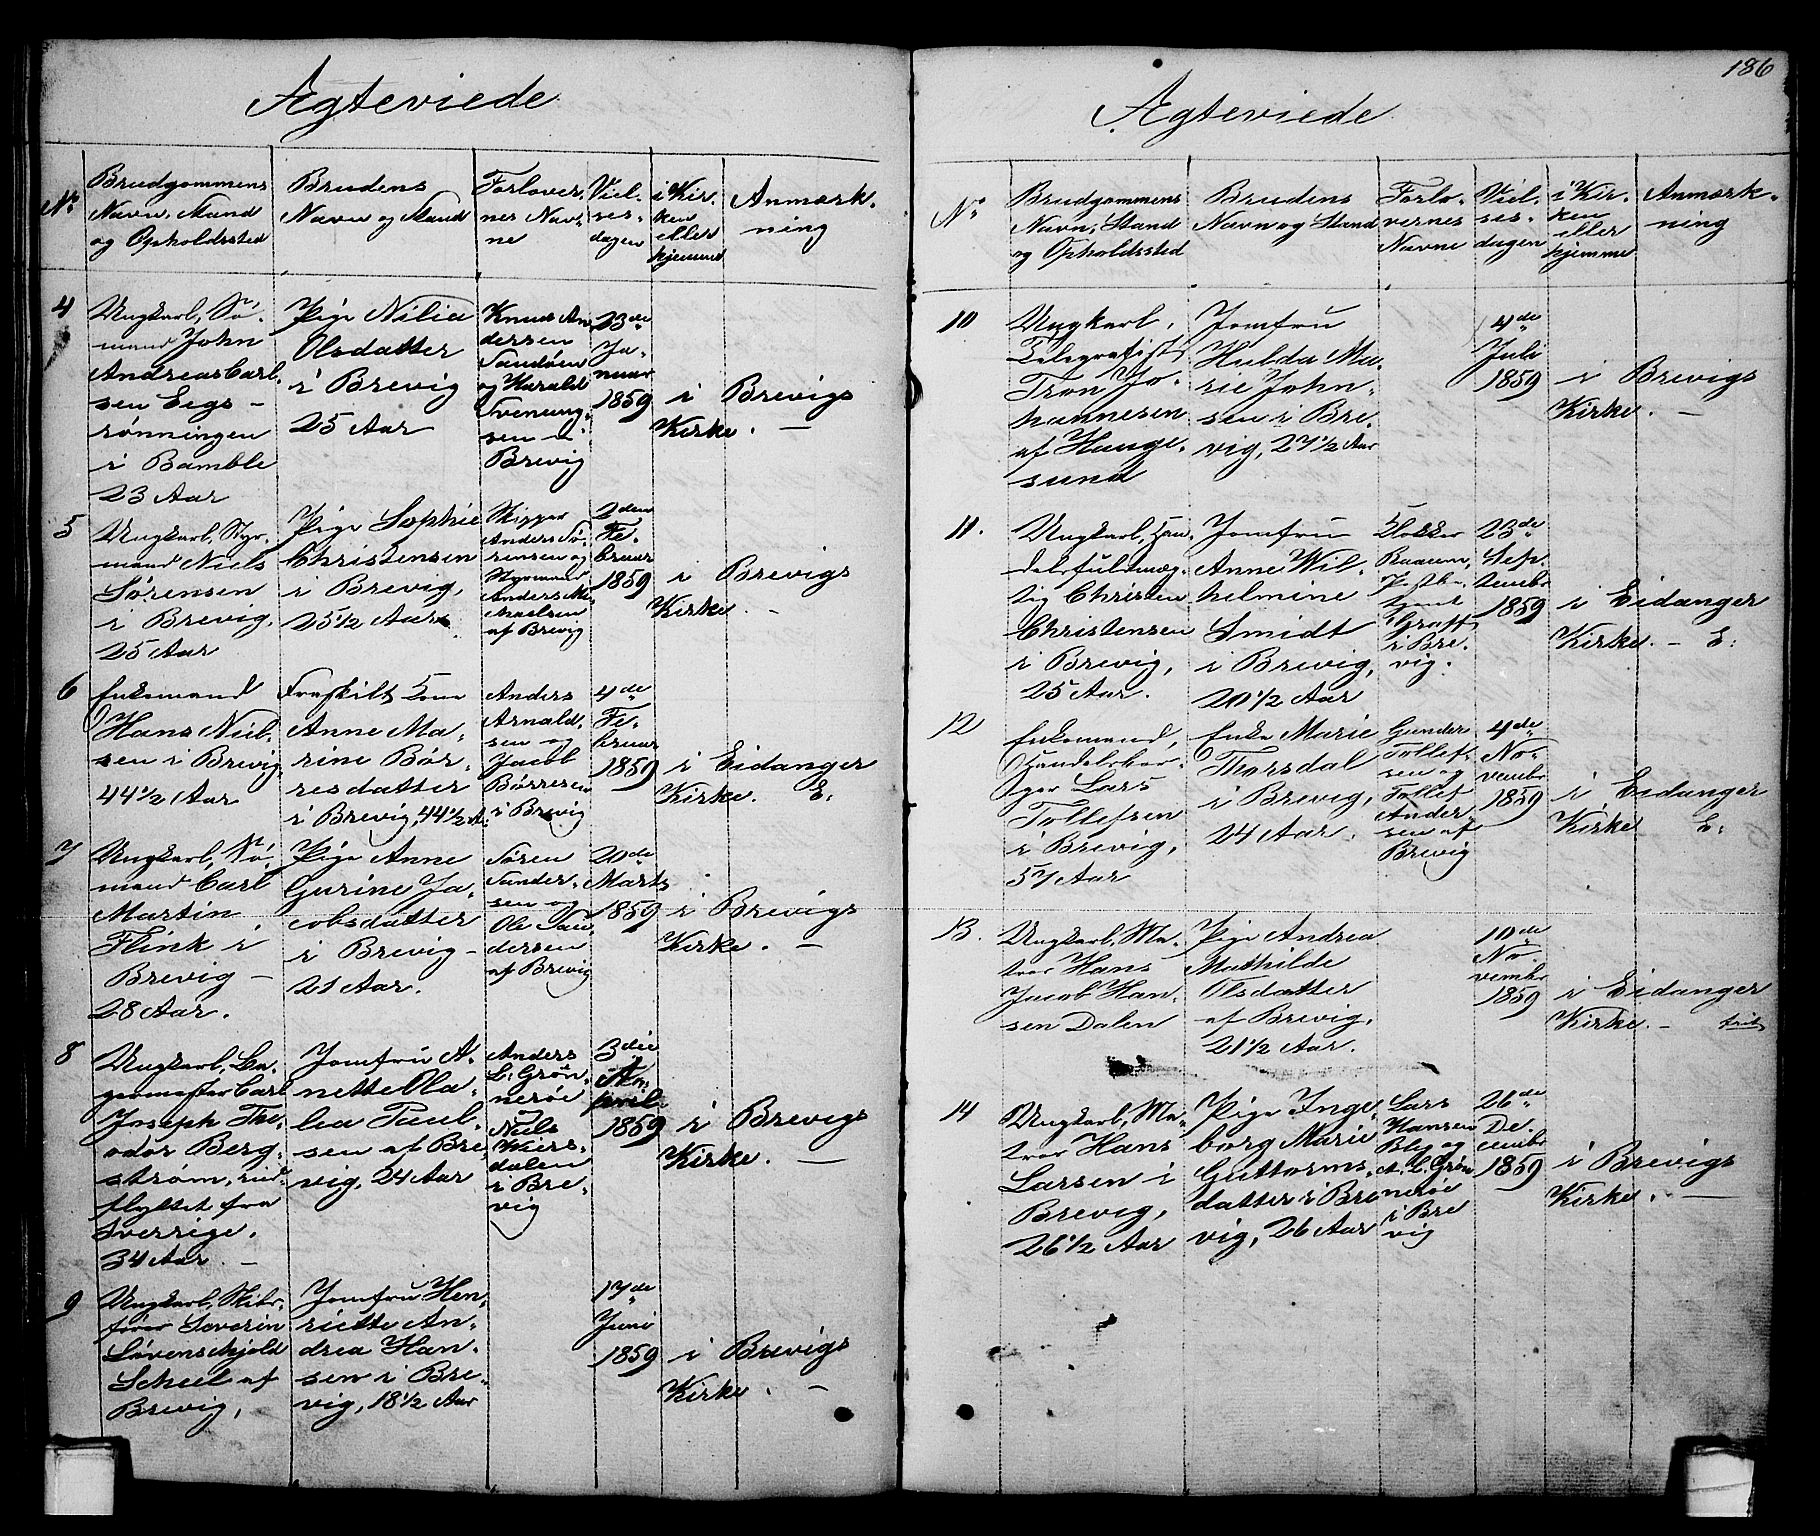 Ægteviede
No
Brudgommens
Navn, Stand
og Opholdssted
Brudens
Navn og Stand
Forlover-
nes Nav-
ne
Viel-
ses-
dagen
i Kir-
ken
eller
hjemme
Anmærk-
ning
4
Ungkarl, Sø-
mand John
Andreas Carl-
sen Eegs-
rønningen
i Bamble
23 Aar
Pige Nilia
Olsdatter
i Brevig
25 Aar
Knud An-
dersen
Sandøen
og Harald
Svenung-
sen i
Brevig
23de
Ja-
nuar
1859
i Brevigs
Kirke. —
5
Ungkarl, Styr-
mand Niels
Sørensen
i Brevig,
25 Aar
Pige Sophie
Christensen
i Brevig,
25 1/2 Aar
Skipper
Anders Sø-
rensen og
Styrmand
Anders Mi-
chaelsen
af Brevig
2den
Fe-
bruar
1859
i Brevigs
Kirke —
6
Enkemand
Hans Niel-
sen i Brevig
44 1/2 Aar
Fraskilt Kone
Anne Ma-
rine Bør-
resdatter
i Brevig, 44 1/2 A.
Anders
Arnald-
sen og
Jacob
Børresen
i Brevig
4de
Fe-
bruar
1859
i Eidanger
Kirke. E:
7
Ungkarl, Sø-
mand Carl
Martin
Flink i
Brevig —
28 Aar.
Pige Anne
Gurine Ja-
cobsdatter
i Brevig —
21 Aar.
Søren
Sunder-
sen og
Ole Tan-
dersen
af Brevig
20de
Marts
1859
i Brevigs
Kirke. —
8
Ungkarl, Ba-
germester Carl
Joseph The-
odor Berg-
strøm, ind-
flyttet fra
Sverrige.
34 Aar. —
Jomfru A-
nette Ola-
lea Paul-
sen af Bre-
vig, 24 Aar
Anders
L. Grøn-
nerøe
Niels
Wiers-
dalen
i Bre-
vig
3die
Ap-
pril
1859
i Brevigs
Kirke. —
9
Ungkarl, Skibs-
fører Severin
Løvenskjold
Scheel af
Brevig,
Jomfru Hen-
riette An-
drea Han-
sen i Bre-
vig, 18 1/2 Aar
17de
Juni
1859
i Brevigs
Kirke. —
186
Ægteviede
No
Brudgommens
Navn, Stand
og Opholdssted
Brudens
Navn og Stand
Forlo-
vernes
Navne
Viel-
ses-
dagen
i Kir-
ken
eller
hjemme
Anmærk-
ning
10
Ungkarl,
Telegrafist
Tron Jo-
hannesen
af Hauge-
sund
Jomfru
Hulda Ma-
rie John-
sen i Bre-
vig, 27 1/2 Aar
4de
Juli
1859
i Brevigs
Kirke. —
11.
Ungkarl, Han-
delsfuldmæg-
tig Christen
Christensen
i Brevig,
25 Aar.
Jomfru
Anne Wil-
helmine
Smidt
i Brevig,
20 1/2 Aar
Klokker
Raaum,
Graff
i Bre-
vig.
23de
Sep-
tembr
1859
i Eidanger
Kirke. — E:
12
Enkemand,
Handelsbor-
ger Lars
Tollefsen
i Brevig,
57 Aar
Enke Marie
Thorsdal
i Brevig,
24 Aar.
Gunder
Tollef-
sen og
Tollef
Ander-
sen af
Brevig
4de
No-
vembr
1859
i Eidanger
Kirke E:
13.
Ungkarl, Ma-
tros Hans
Jacob Han-
sen Dalen
Pige Andrea
Mathilde
Olsdatter
af Brevig,
21 1/2 Aar.
10de
No-
vembr
1859
i Eidanger
Kirke. —
14
Ungkarl, Ma-
tros Hans
Larsen i
Brevig,
26 1/2 Aar
Pige Inge-
borg Marie
Guttorms-
datter i Bre-
vig, 26 Aar
Lars
Hansen
Bleg og
A. L. Grøn-
nerøe
i Bre
vig
26de
De-
cembr
1859
i Brevigs
Kirke. —